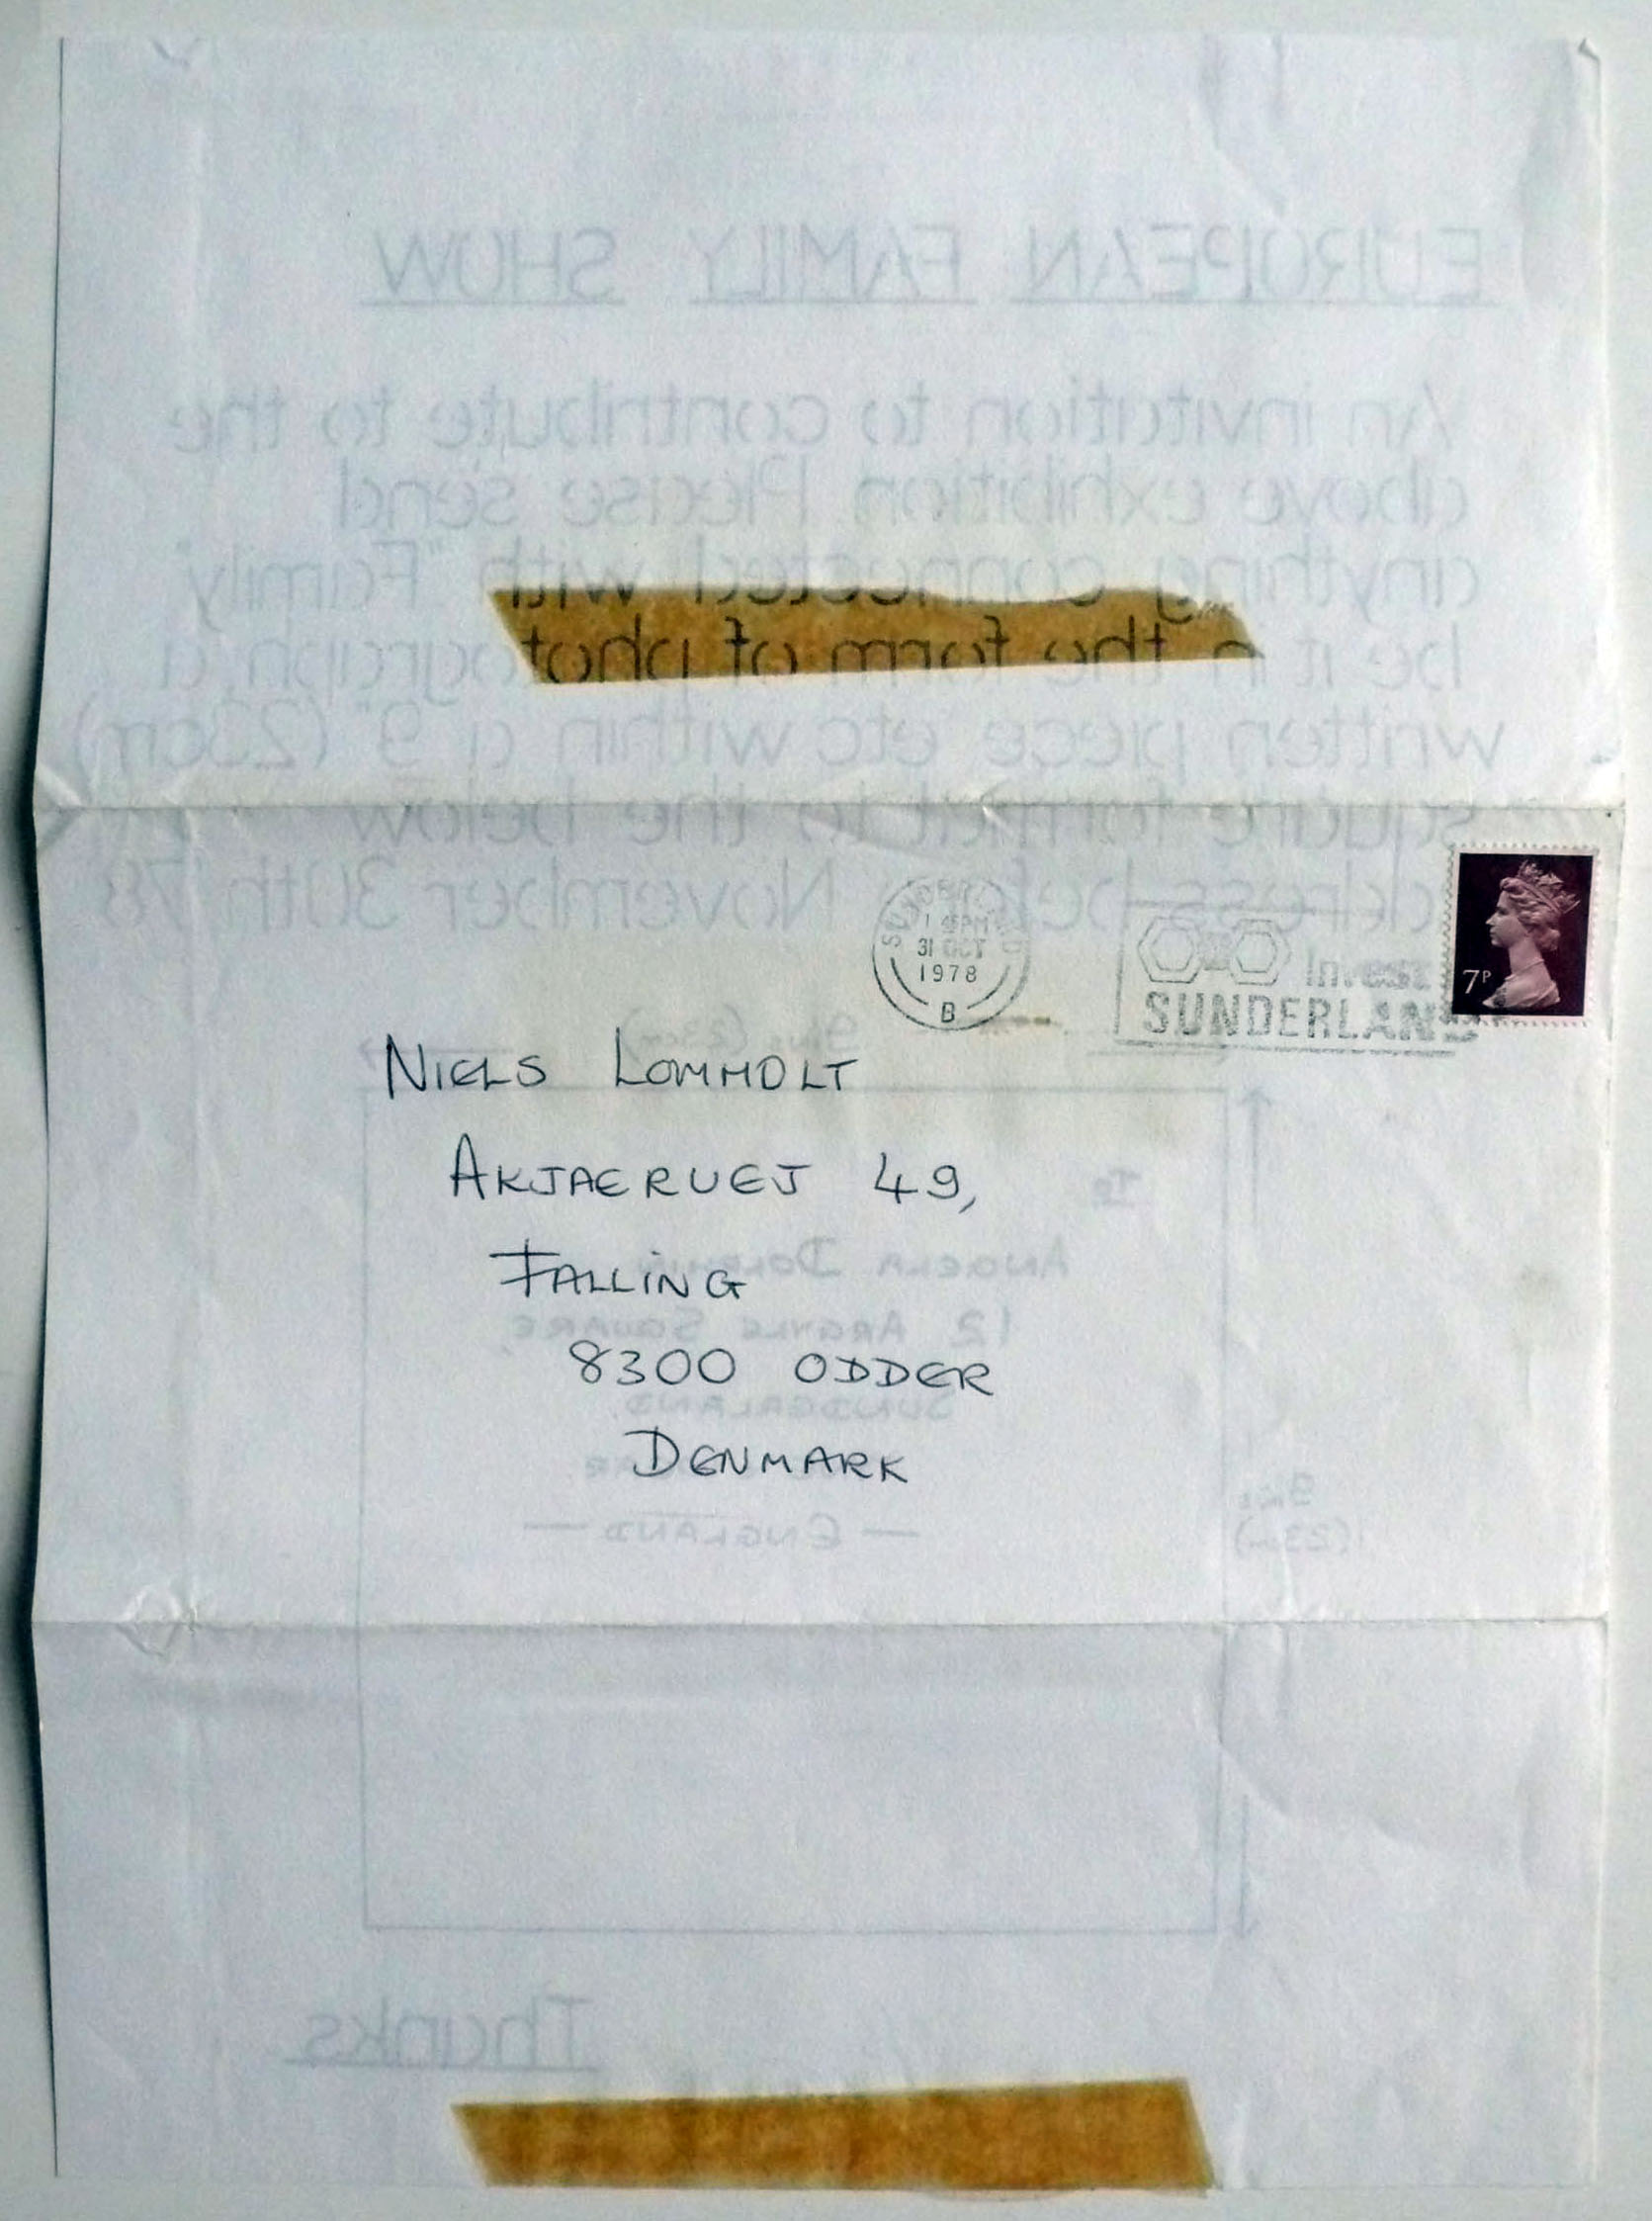 EUROPEAN FAMILY SHOW
An invitation to contribute to the
above exhibition Please send
anything connected with "Family"
be it in the form of photograph, a
written piece etc within a 9" (23cm)
square format to the below
address before November 30th '78
SUNDERLAND
1 45PM
31 OCT
1978
B
Invest
SUNDERLAND
7P
9ins (23cm)
NIELS LOMHOLT
AKJAERVEJ 49,
FALLING
8300 ODDER
DENMARK
To
ANGELA DOLPHIN
12 ARGYLE SQUARE,
SUNDERLAND,
— ENGLAND —
9ins
(23cm)
Thanks